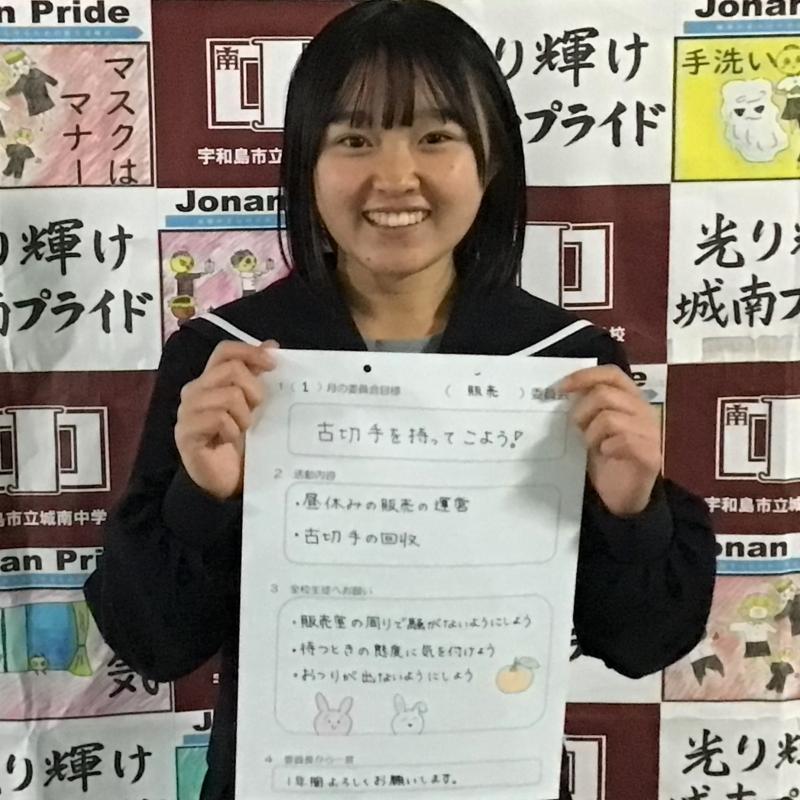 n Pride
Jonan
マスクは
マナー
南
宇和島市立
り輝け
プライド
手洗い
Jonan
り輝け
南プライド
光り輝
城南プ
校
1（1）月の委員会目標 （ 販売 ）委員会
古切手を持ってこよう!
2 活動内容
・昼休みの販売の運営
・古切手の回収
3 全校生徒へお願い
・販売室の周りで騒がないようにしよう
・待つときの態度に気を付けよう
・おつりが出ないようにしよう
4 委員長から一言
1年間よろしくお願いします。
島市立城南中学
南
宇和島市立
an Pri
onan
気
J
り輝け
光り輝